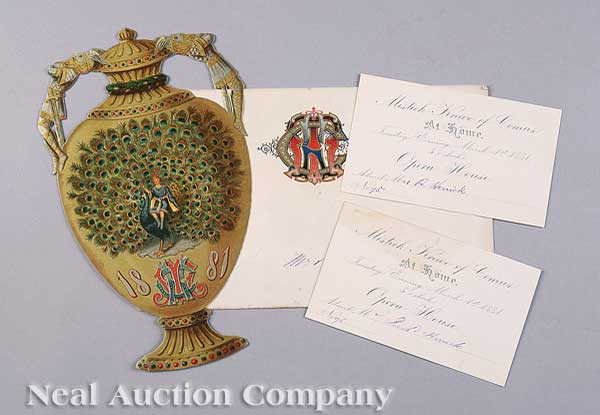 1881
Mistick Krewe of Comus
At Home.
Tuesday Evening March 1st 1881.
Opera House
Admit Mrs Herrick
No 95
Mistick Krewe of Comus
At Home.
Tuesday Evening March 1st 1881.
Opera House
Admit Herrick
No 95
Neal Auction Company